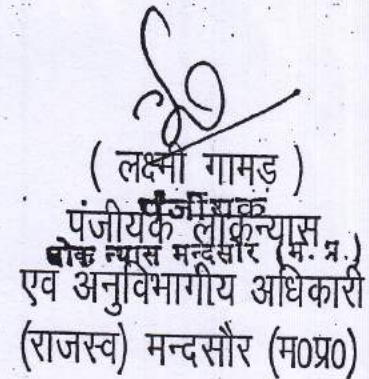 ( लक्ष्मी गामड़ )
पंजीयक
पंजीयक लोकन्यास
लोक न्यास मन्दसौर (म. प्र.)
एवं अनुविभागीय अधिकारी
(राजस्व) मन्दसौर (म0प्र0)